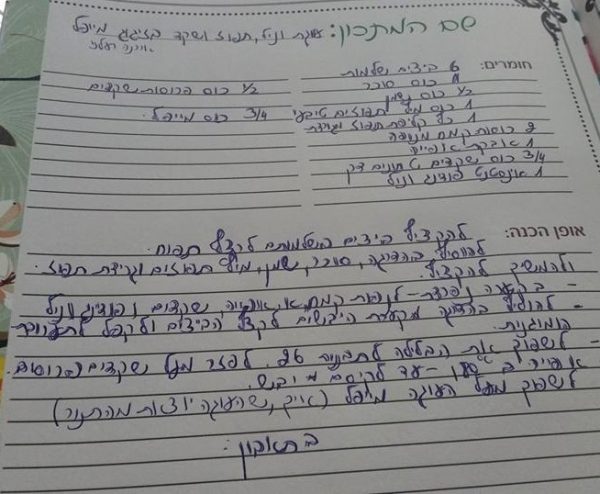 שם המתכון: עוגת וניל, תפוז ושקד בזיגוג מייפל
חומרים: 6 ביצים שלמות
1 כוס סוכר
1/2 כוס שמן
1 כוס מיץ תפוזים טבעי
1 כף קליפת תפוז מגוררת
2 כוסות קמח מנופה
1 אבקת אפייה
3/4 כוס שקדים טחונים דק
1 אינסטנט פודינג וניל
1/2 כוס פרוסות שקדים
3/4 כוס מייפל.
אופן הכנה: להקציף ביצים בשלמותם לקצף תפוח.
להוסיף בהדרגה, סוכר, שמן, מיץ תפוזים וקליפת תפוז.
ולהמשיך להקציף.
- בקערה נפרדת - לנפות קמח, א. אפייה, שקדים ופודינג וניל
- להוסיף בהדרגה מקערת היבשים לקצף הביצים ולקבל תערובת
הומוגנית.
- לשפוך את הבלילה לתבנית 26. לפזר מעל שקדים פרוסים.
אפייה ב - עד לקיסם יבש.
לשפוך מעל העוגה מייפל (איך שהעוגה יוצאת מהתנור)
בתאבון.